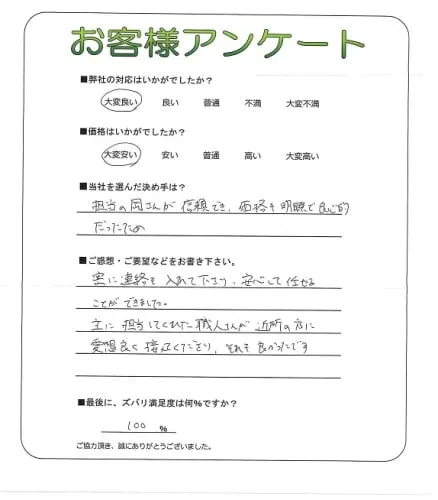 お客様アンケート
■弊社の対応はいかがでしたか？
大変良い 良い 普通 不満 大変不満
■価格はいかがでしたか？
大変安い 安い 普通 高い 大変高い
■当社を選んだ決め手は？
担当の岡さんが信頼でき、価格も明瞭で良心的
だったため
■ご感想・ご要望などをお書き下さい。
密に連絡を入れて下さり、安心して任せる
ことができました。
主に担当してくれた職人さんが近所の方に
愛想良く接してくださり、それも良かったです
■最後に、ズバリ満足度は何％ですか？
100 ％
ご協力頂き、誠にありがとうございました。